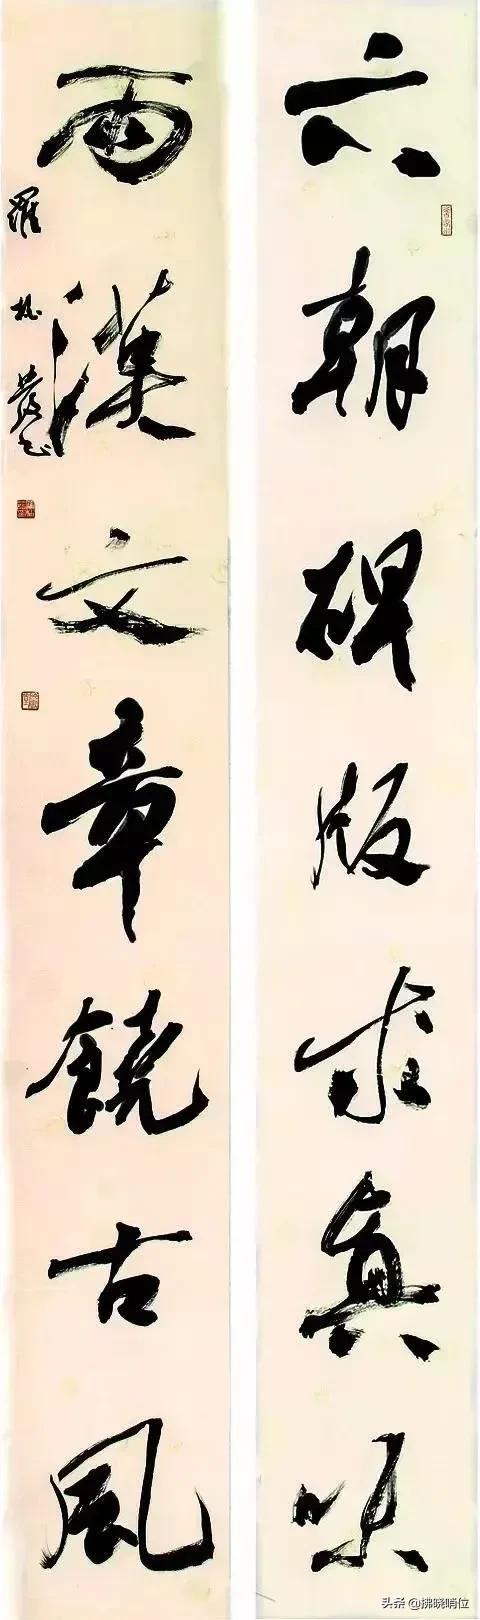 六朝碑版求真味
兩漢文章饒古風
羅
头条 @拂晓哨位